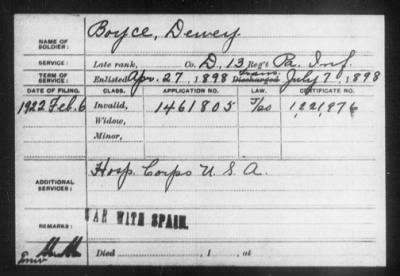 NAME OF SOLDIER: Boyce, Dewey.
SERVICE: Late rank, Co. D, 13 Reg't Pa. Inf.
TERM OF SERVICE: Enlisted Apr. 27, 1898 Discharged Trans. July 7, 1898
DATE OF FILING. CLASS. APPLICATION NO. LAW. CERTIFICATE NO.
1922 Feb. 6 Invalid, 1461805 1,221,976
Widow,
Minor,
ADDITIONAL SERVICES: Hosp. Corps U.S.A.
WAR WITH SPAIN.
REMARKS:
Died , 1 , at